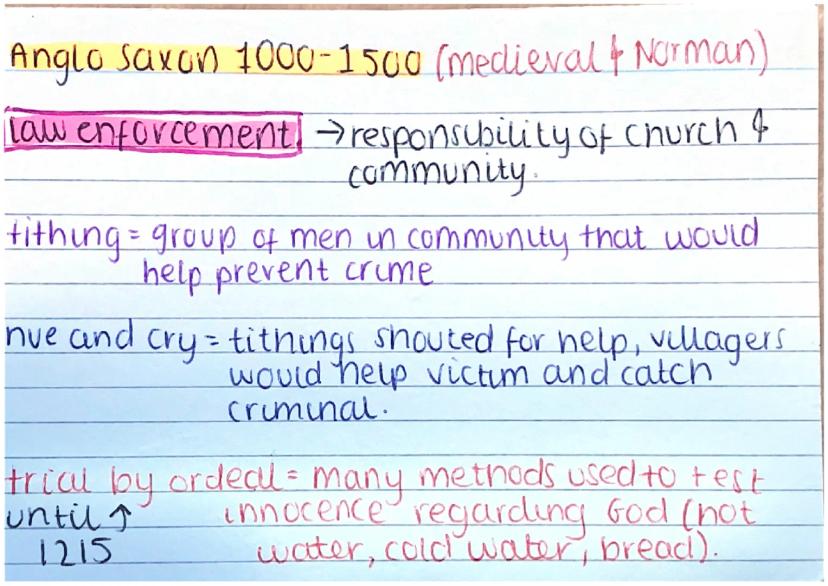 Anglo Saxon 1000-1500 (medieval & Norman)
law enforcement → responsibility of church &
community.
tithing = group of men in community that would
help prevent crime
hue and cry = tithings shouted for help, villagers
would help victim and catch
criminal.
trial by ordeal = many methods used to test
until ↑ innocence regarding God (hot
1215 water, cold water, bread).